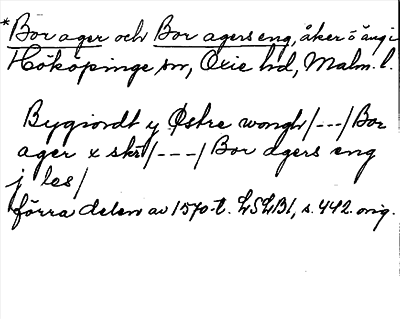 *Bor ager och Bor agers eng, åker o äng i
Hököpinge sn, Oxie hd, Malm. l.
Bygiordt y Østre wongh /---/ Bor
ager x skr /---/ Bor agers eng
j les /
förra delen av 1570-t. LSLB1, s. 442. orig.